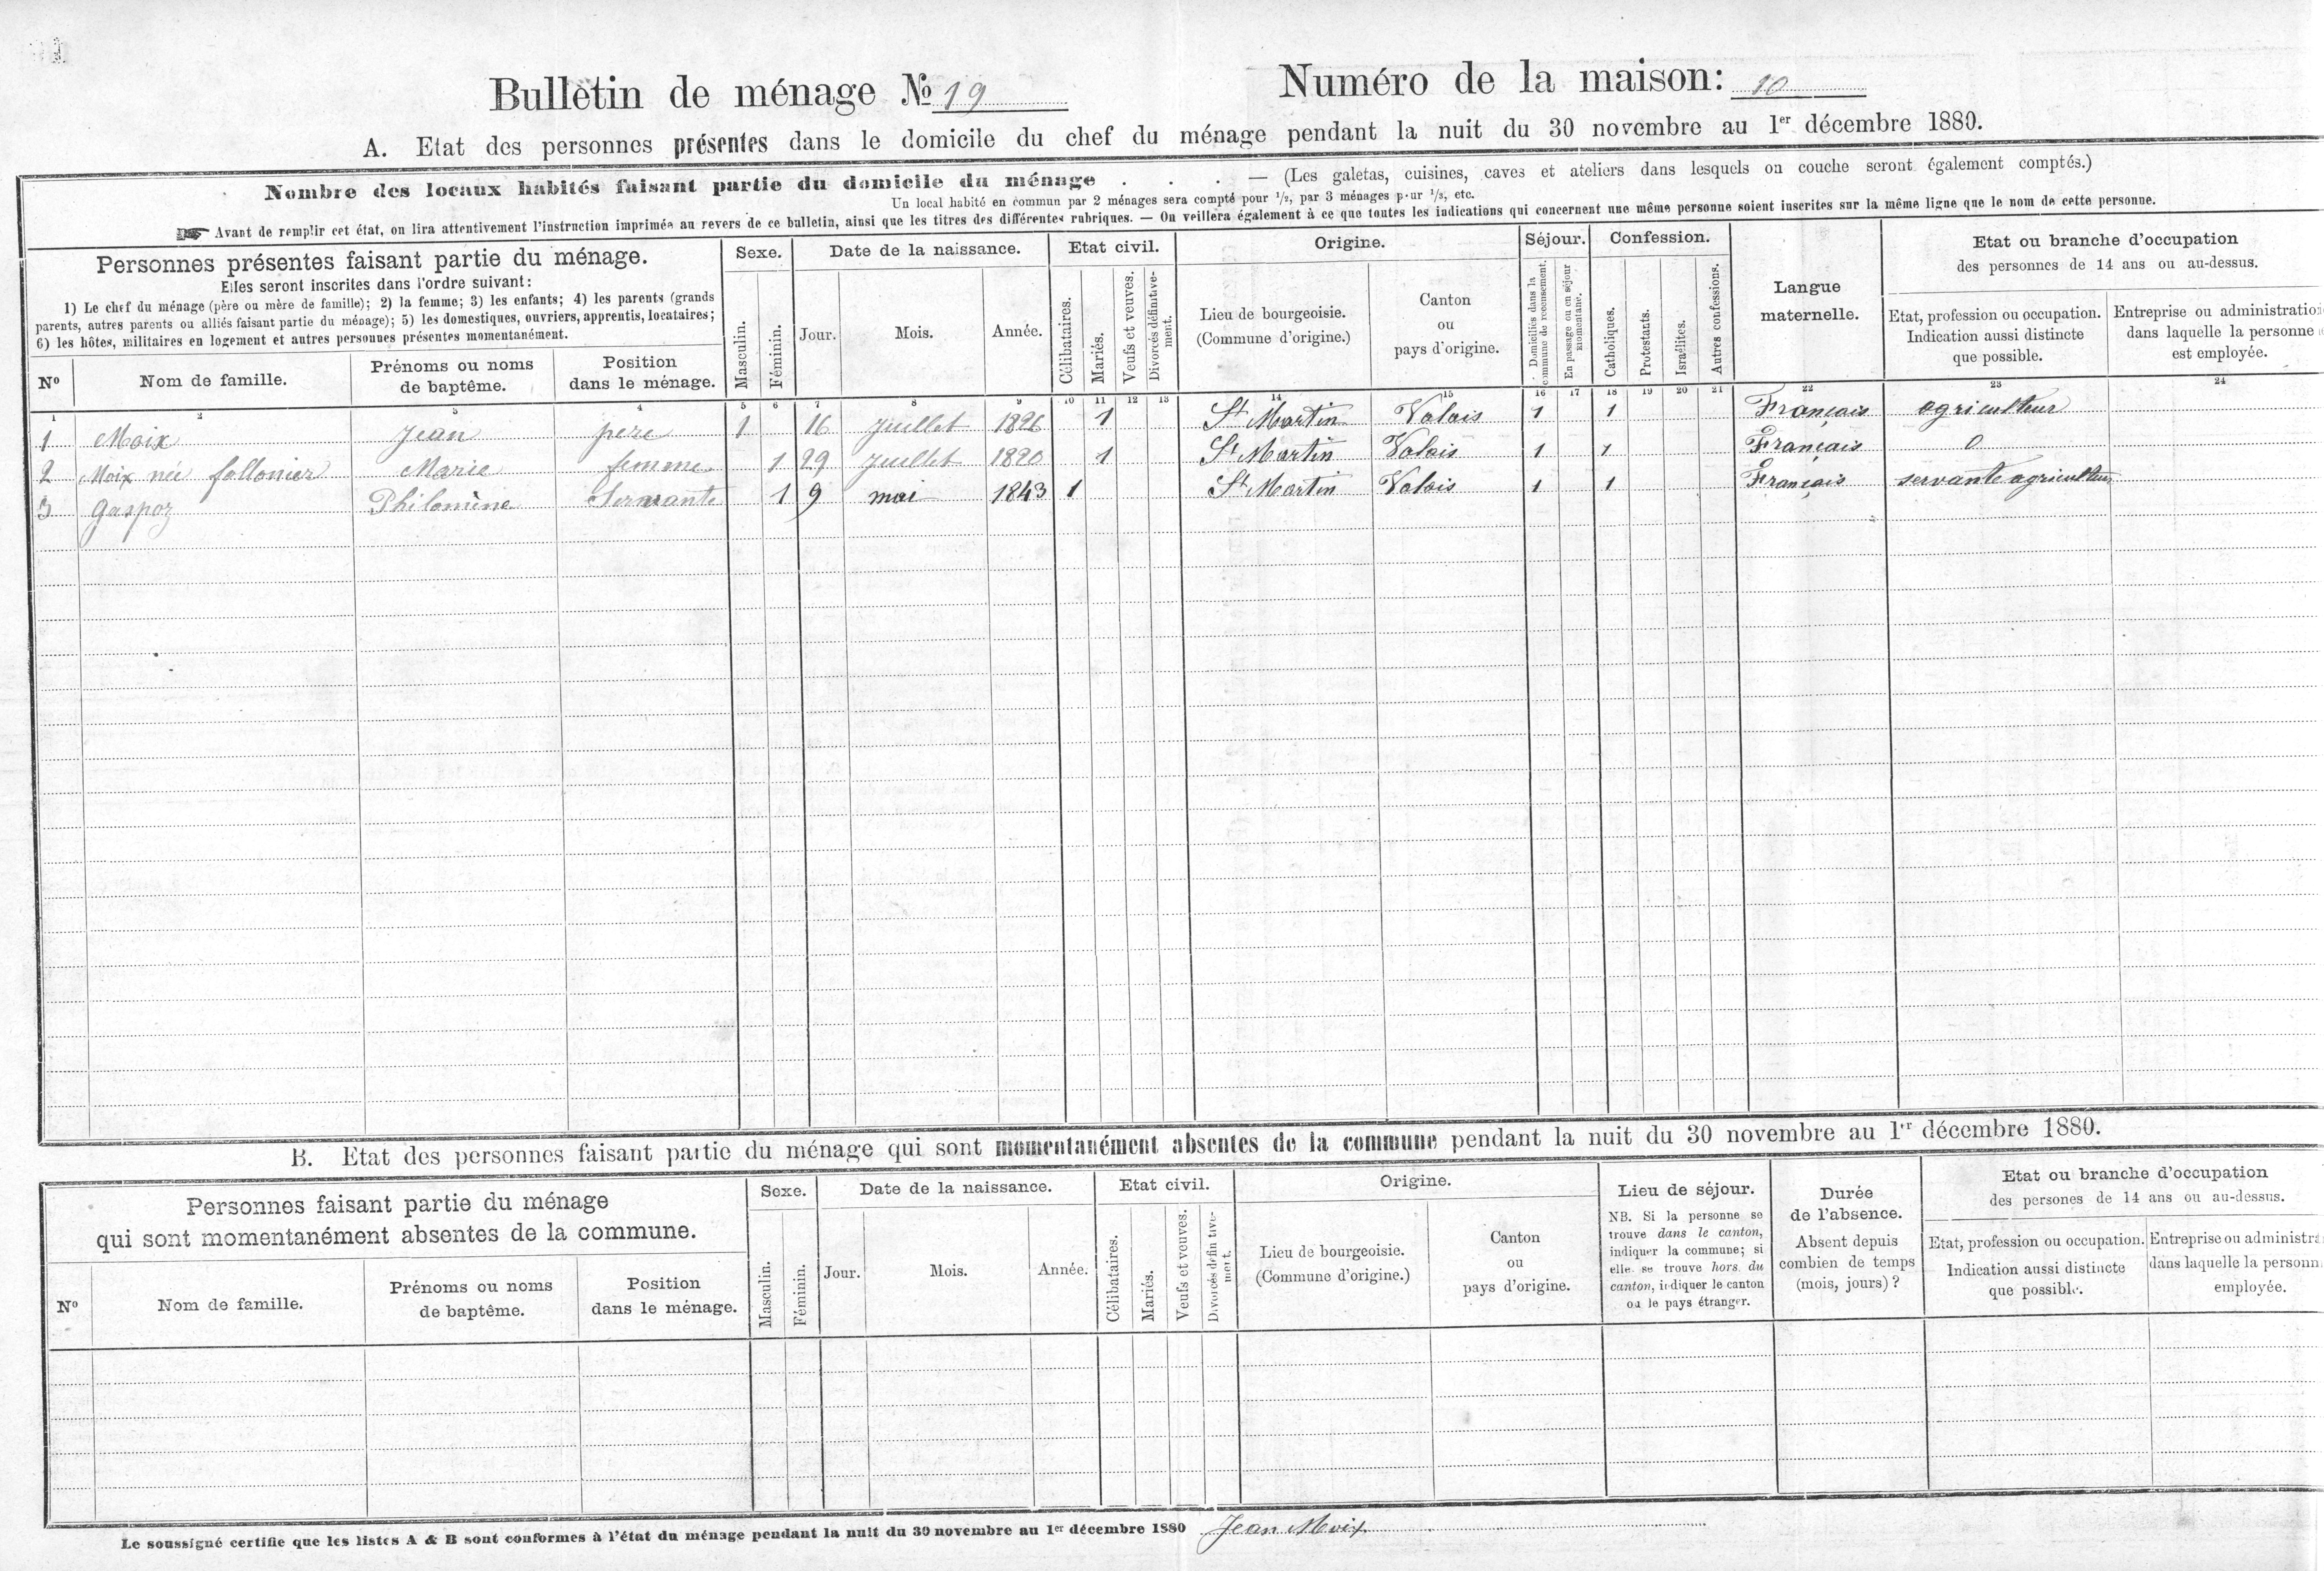 Bulletin de ménage № 19 Numéro de la maison: 10
A. Etat des personnes présentes dans le domicile du chef du ménage pendant la nuit du 30 novembre au 1er décembre 1880.
Nombre des locaux habités faisant partie du domicile du ménage . . . — (Les galetas, cuisines, caves et ateliers dans lesquels on couche seront également comptés.)
Un local habité en commun par 2 ménages sera compté pour 1/2, par 3 ménages pour 1/3, etc.
☛ Avant de remplir cet état, on lira attentivement l'instruction imprimée au revers de ce bulletin, ainsi que les titres des différentes rubriques. — On veillera également à ce que toutes les indications qui concernent une même personne soient inscrites sur la même ligne que le nom de cette personne.
Personnes présentes faisant partie du ménage.
Elles seront inscrites dans l'ordre suivant:
1) Le chef du ménage (père ou mère de famille); 2) la femme; 3) les enfants; 4) les parents (grands
parents, autres parents ou alliés faisant partie du ménage); 5) les domestiques, ouvriers, apprentis, locataires;
6) les hôtes, militaires en logement et autres personnes présentes momentanément.
Nº
Nom de famille.
Prénoms ou noms
de baptême.
Position
dans le ménage.
Sexe.
Masculin.
Féminin.
Date de la naissance.
Jour.
Mois.
Année.
Etat civil.
Célibataires.
Mariés.
Veufs et veuves.
Divorcés définitive-
ment.
Origine.
Lieu de bourgeoisie.
(Commune d'origine.)
Canton
ou
pays d'origine.
Séjour.
Domiciliés dans la
commune de recensement.
En passage ou en séjour
momentané.
Confession.
Catholiques.
Protestants.
Israélites.
Autres confessions.
Langue
maternelle.
Etat ou branche d'occupation
des personnes de 14 ans ou au-dessus.
Etat, profession ou occupation.
Indication aussi distincte
que possible.
Entreprise ou administratio
dans laquelle la personne
est employée.
1 2 3 4 5 6 7 8 9 10 11 12 13 14 15 16 17 18 19 20 21 22 23 24
1 Moix Jean pere 1 16 Juillet 1826 1 St Martin Valais 1 1 Français agriculteur
2 Moix née follonier Marie femme 1 29 Juillet 1820 1 St Martin Valais 1 1 Français 0
3 Gaspoz Philomène Servante 1 9 mai 1843 1 St Martin Valais 1 1 Français servante agriculteur
B. Etat des personnes faisant partie du ménage qui sont momentanément absentes de la commune pendant la nuit du 30 novembre au 1er décembre 1880.
Personnes faisant partie du ménage
qui sont momentanément absentes de la commune.
Nº
Nom de famille.
Prénoms ou noms
de baptême.
Position
dans le ménage.
Sexe.
Masculin.
Féminin.
Date de la naissance.
Jour.
Mois.
Année.
Etat civil.
Célibataires.
Mariés.
Veufs et veuves.
Divorcés définitive-
ment.
Origine.
Lieu de bourgeoisie.
(Commune d'origine.)
Canton
ou
pays d'origine.
Lieu de séjour.
NB. Si la personne se
trouve dans le canton,
indiquer la commune; si
elle se trouve hors du
canton, indiquer le canton
ou le pays étranger.
Durée
de l'absence.
Absent depuis
combien de temps
(mois, jours) ?
Etat ou branche d'occupation
des persones de 14 ans ou au-dessus.
Etat, profession ou occupation.
Indication aussi distincte
que possible.
Entreprise ou administra
dans laquelle la personn
employée.
Le soussigné certifie que les listes A & B sont conformes à l'état du ménage pendant la nuit du 30 novembre au 1er décembre 1880 Jean Moix